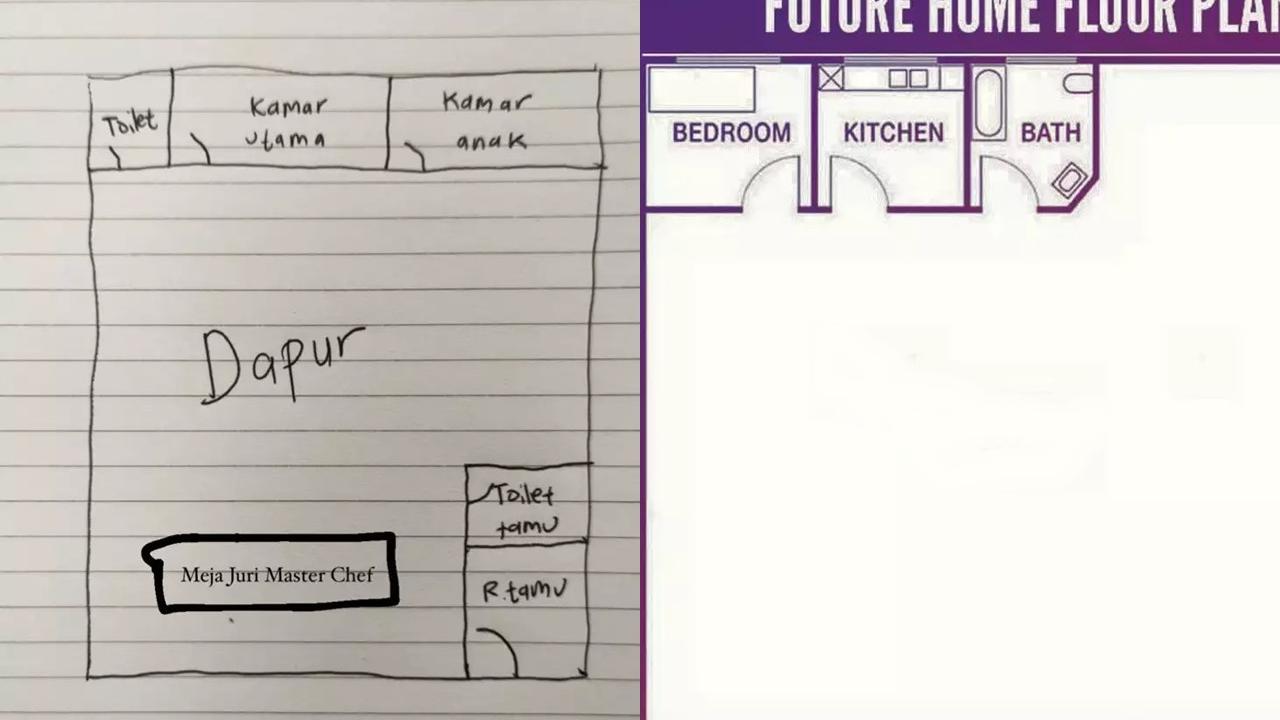 Toilet
Kamar
utama
Kamar
anak
Dapur
Toilet
tamu
Meja Juri Master Chef
R.tamu
FUTURE HOME FLOOR PLAN
BEDROOM
KITCHEN
BATH